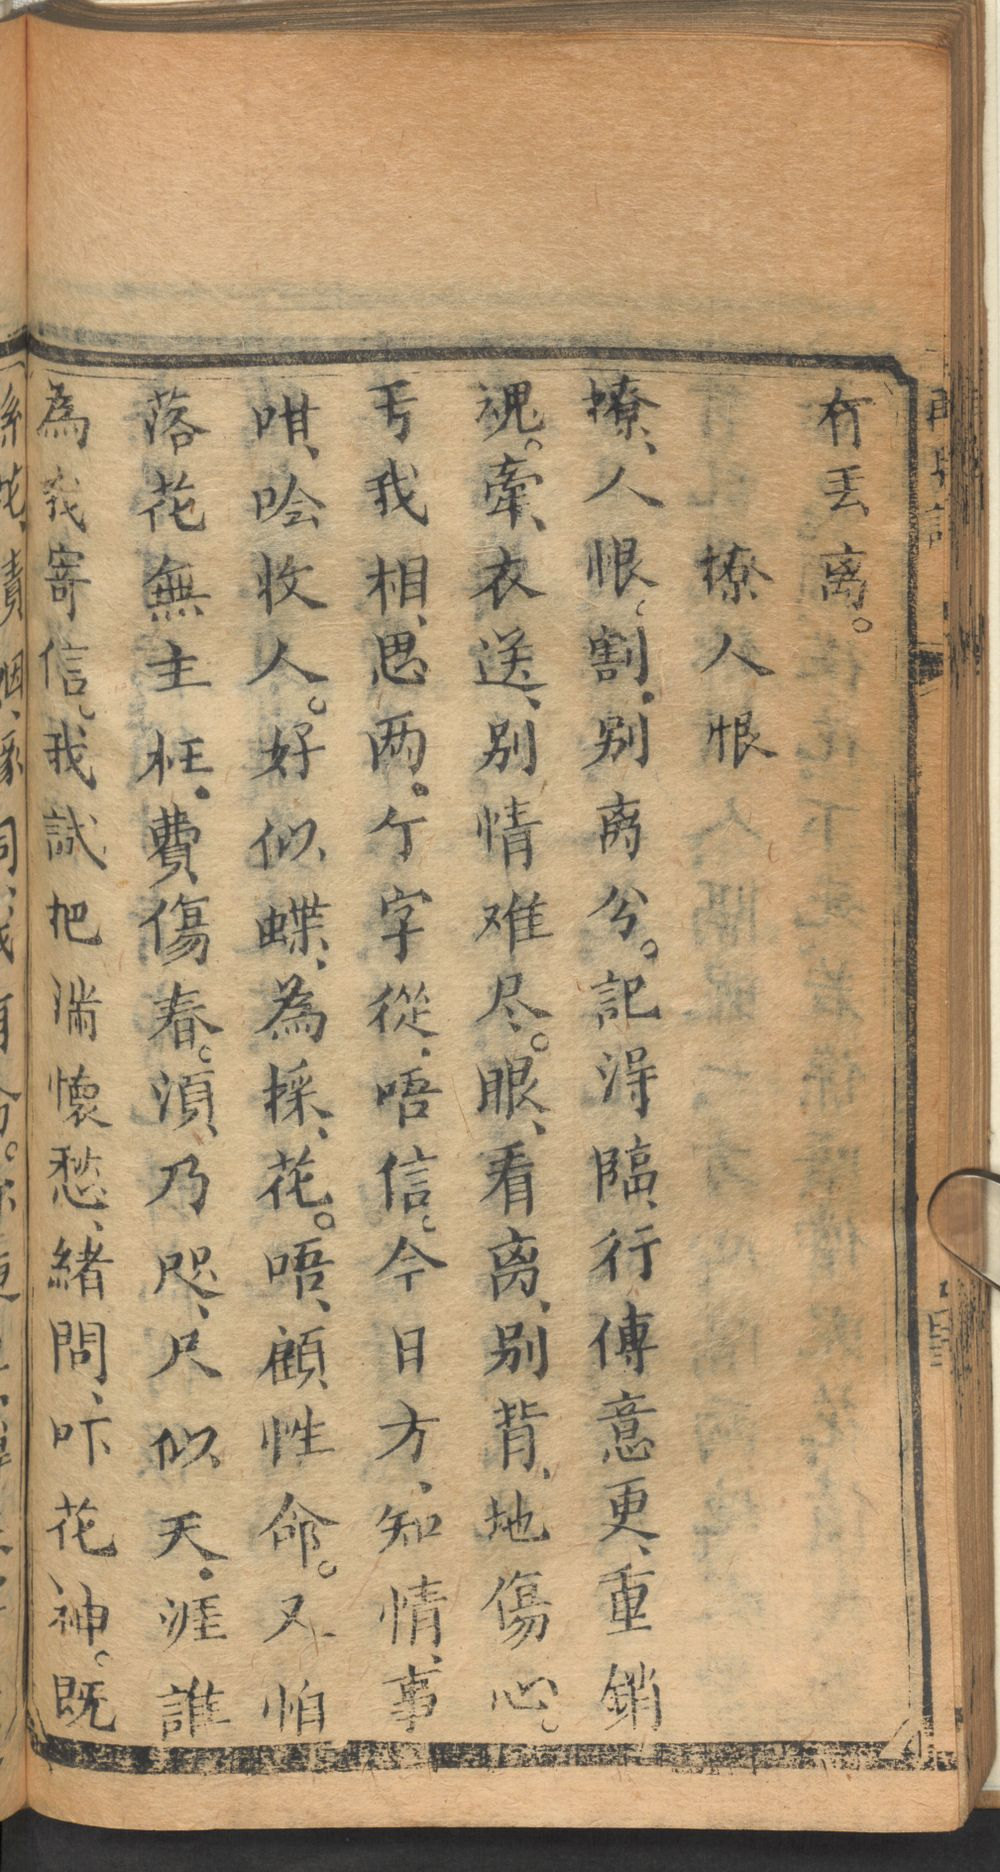 冇丢离。
撩人恨
撩、人恨、割.别离兮。記淂臨、行傳意更、重銷
魂。牽、衣送、别情难尽、。眼、看离、别背、地傷心。
丐我相、思两。亇字從、唔信、今日方、知情、事
咁、唫收人。好似、蝶、為採、花。唔、顧性命。又怕
落花無主枉.費傷春。湏、乃咫、尺似天.涯誰
為我寄信。我試把滿懷愁、緒問、吓花神。既